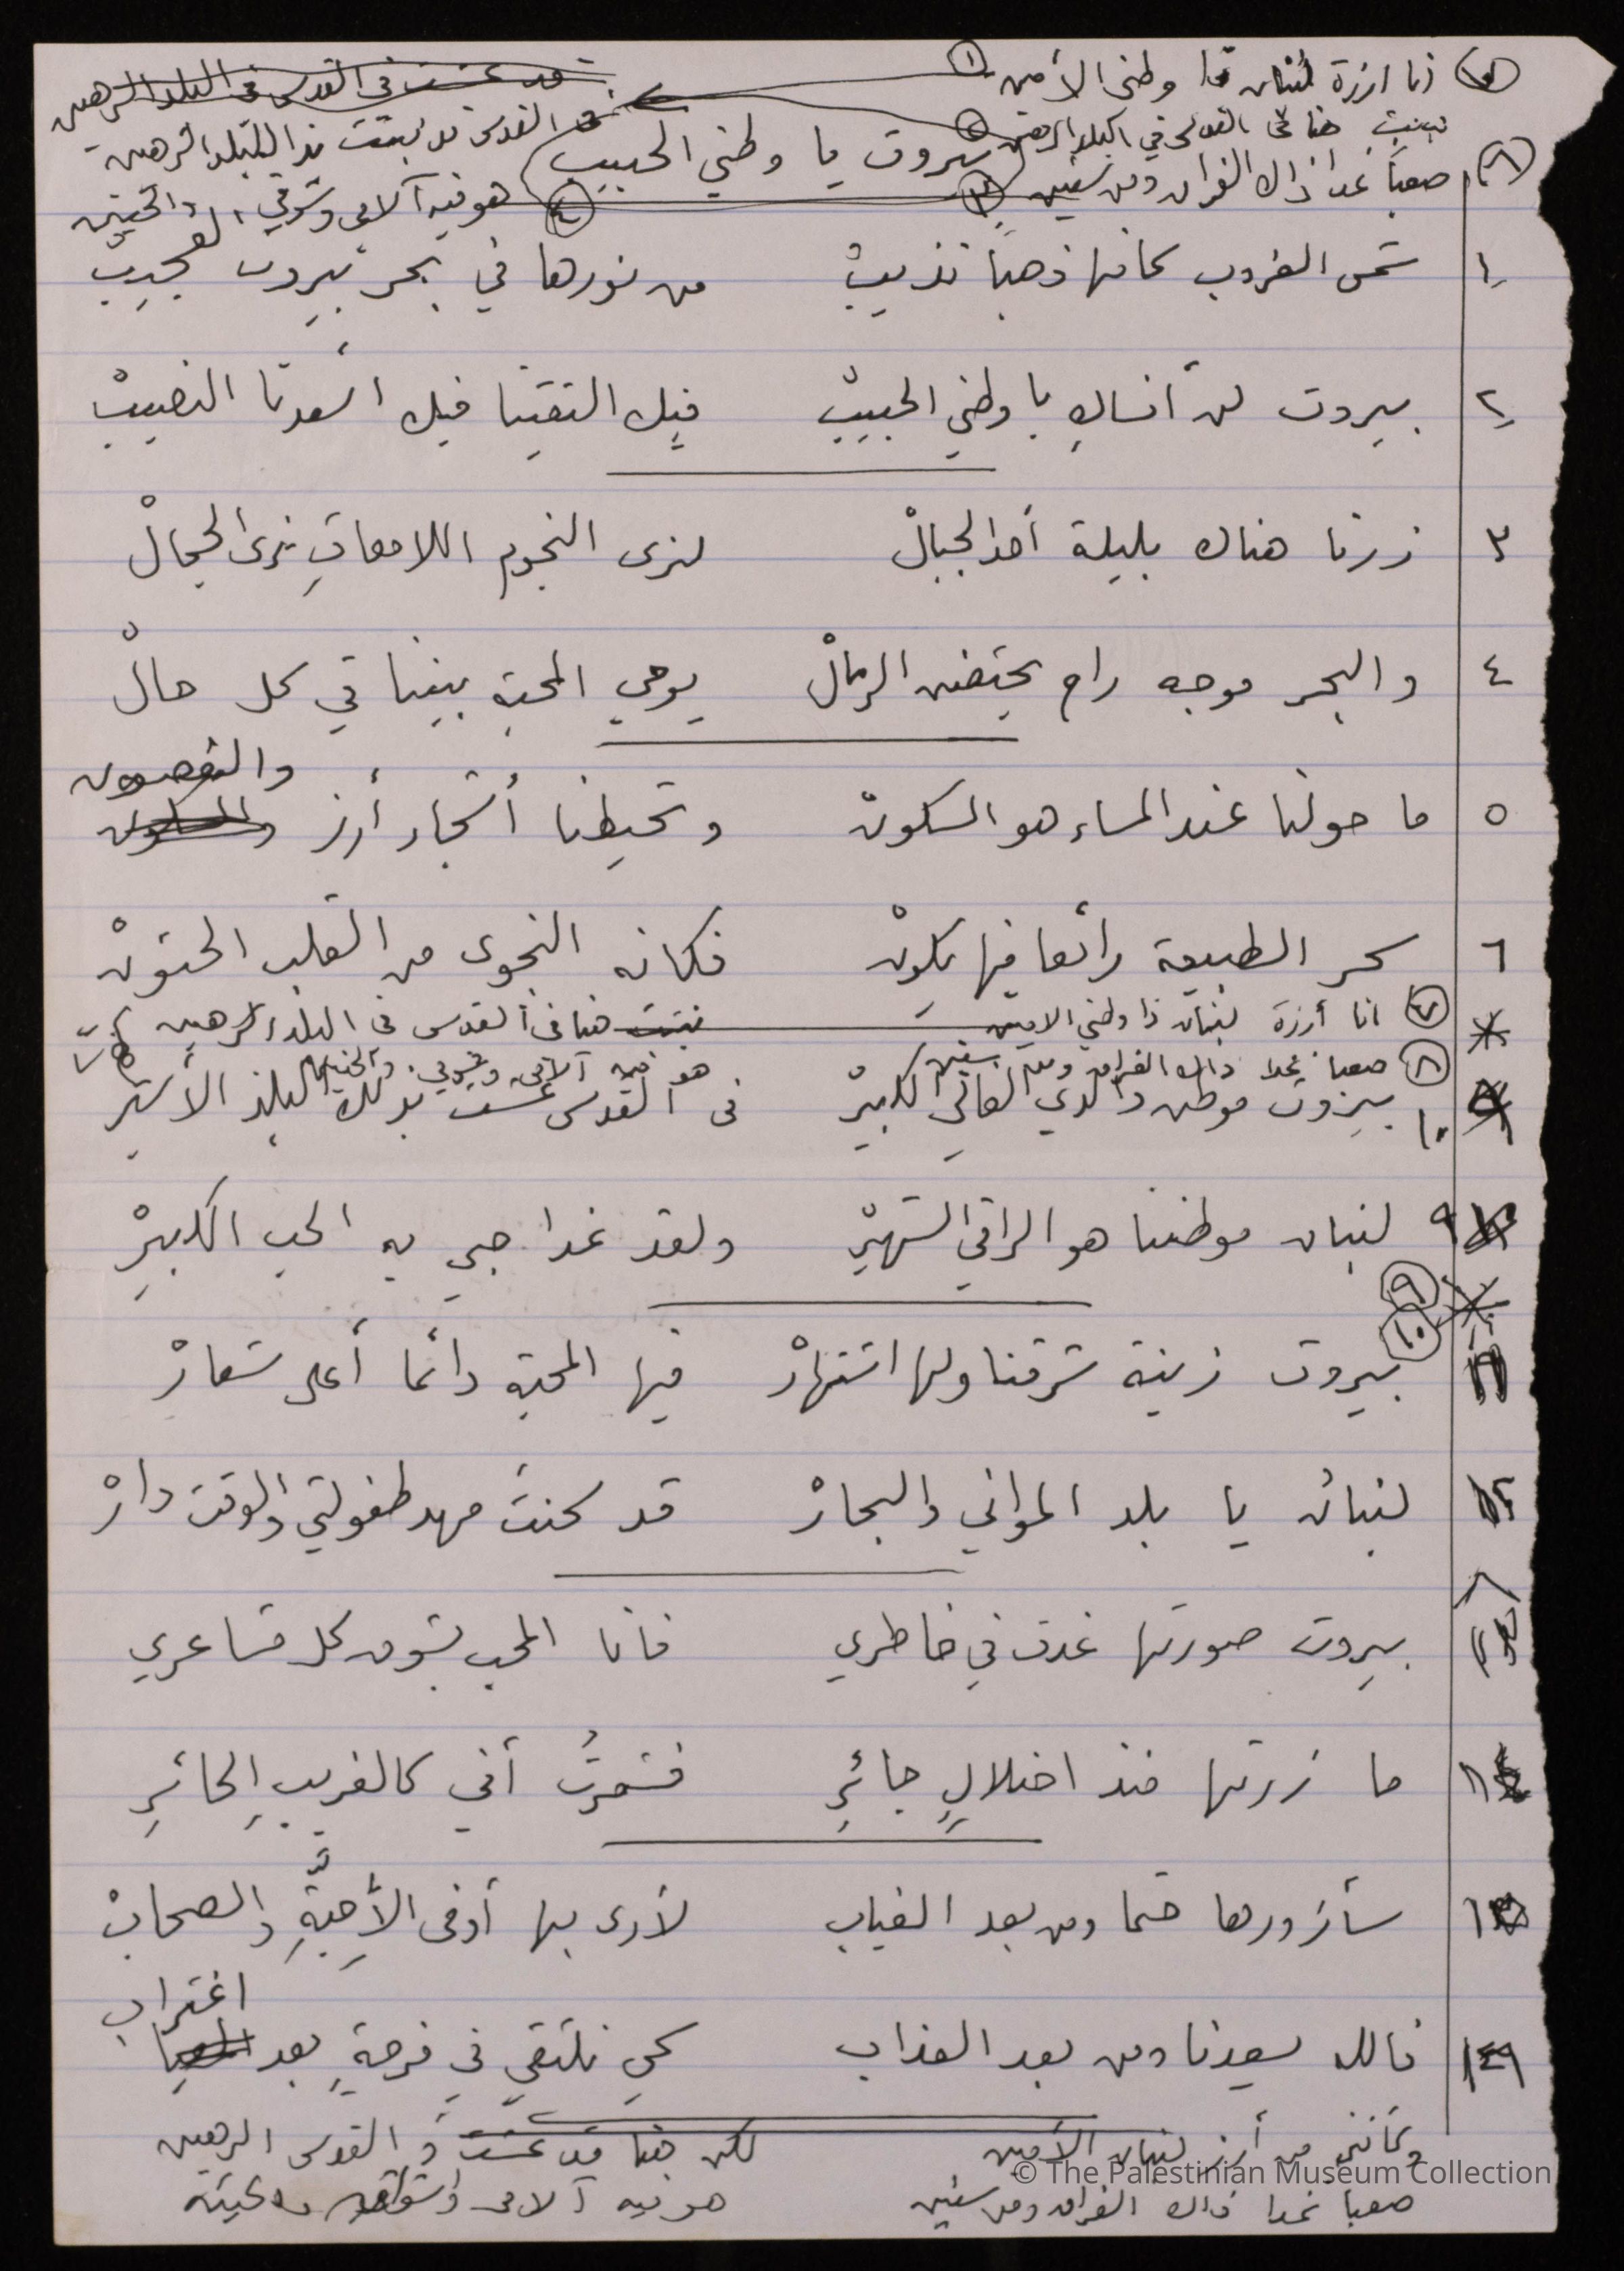 انا ارزة لبنان ذا وطني الأمين ① قد عشت في القدس في البلد الرهين
نبتت هنا في القدس في البلد الرهين في القدس قد نبتت بذا البلد الرهين
بيروت يا وطني الحبيب
صعبا غدا ذاك الفراق ومن سنين ③ ④ هو فيه آلامي وشوقي والحنين
١ شمس الغروب كأنها ذهبا تذيبْ من نورها في بحر بيروت العجيبْ
٢ بيروت لن أنساكِ يا وطني الحبيبْ فيك التقينا فيك أسعدنا النصيبْ
٣ زرنا هناك بليلة أحد الجبالْ لنرى النجوم اللامعاتِ نرى الجمالْ
٤ والبحر موجه راح يحتضن الرمالْ يوحي المحبة بيننا في كل حالْ
والغصون
٥ ما حولنا عند المساء هو السكونْ وتحيطنا أشجار أرز
٦ سحر الطبيعة رائعا فيها يكونْ فكانه النجوى من القلب الحنونْ
⑦ انا أرزة لبنان ذا وطني الامين نبتت هنا في القدس في البلد الرهين
⑧ صعبا غدا ذاك الفراق ومن سنين هو فيه آلامي وشوقي والحنين
١٠ بيروت موطن والدي الغالي الكبيرْ في القدس عشت بذلك البلد الأسير
٩ لبنان موطننا هو الراقي الشهيرْ ولقد غدا حبي به الحب الكبيرْ
⑨
⑩
١١ بيروت زينة شرقنا ولها اشتهارْ فيها المحبة دائما أعلى شعارْ
١٢ لبنان يا بلد المواني والبحارْ قد كنتَ مهد طفولتي والوقت دارْ
بيروت صورتها غدت في خاطري فانا المحب بشوق كل مشاعري
ما زرتها منذ احتلالٍ جائرِ فشعرتُ أني كالغريبِ الحائرِ
سأزورها حتما ومن بعد الغياب لأرى بها أوفى الأحبَّةِ والصحابْ
اغتراب
فالله يسعدنا ومن بعد العذاب كي نلتقي في فرحةٍ بعد
وكأنني من أرز لبنان الأمين لكن هنا قد عشت و القدس الرهين
صعبا غدا ذاك الفراق ومن سنين هو فيه آلامي
© The Palestinian Museum Collection